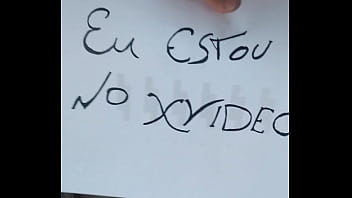 Eu ESTOU
NO XVIDEO